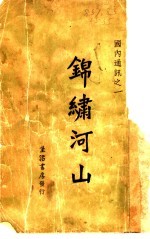 國內通訊之一
錦繡河山
書店發行